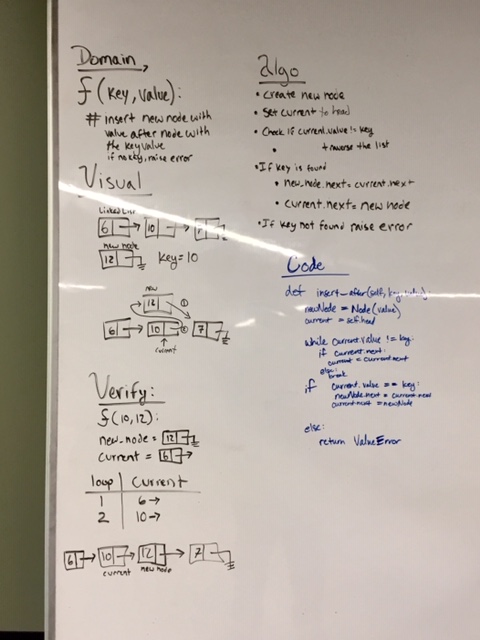 Domain
f(key, value):
# insert new node with
value after node with
the key value
if no key, raise error
Visual
Linked List
6 10 7
new node
12 key=10
new
12 ①
6 10 ② 7
current
Verify:
f(10,12):
new_node = 12
current = 6
loop current
1 6→
2 10→
6 10 12 7
current new node
algo
• create new node
• Set current to head
• Check if current.value != key
• traverse the list
• If key is found
• new_node.next = current.next
• current.next = new node
• If key not found raise error
Code
def insert_after(self, key, value)
newNode = Node(value)
current = self.head
while current.value != key:
if current.next:
current = current.next
else:
break
if current.value == key:
newNode.next = current.next
current.next = newNode
else:
return ValueError